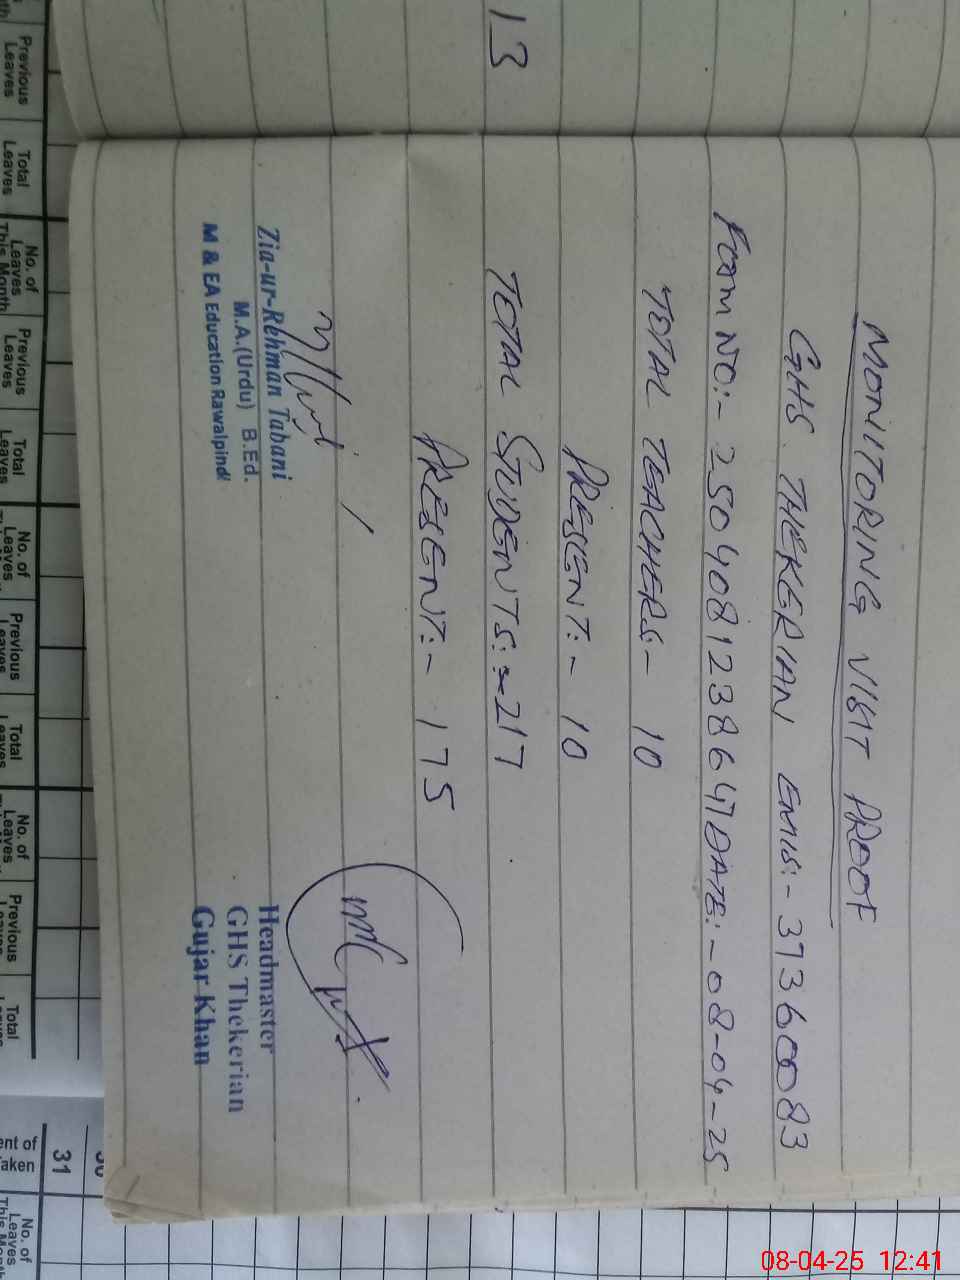 13
MONITORING VISIT PROOF
GHS THEKERIAN EMIS:- 37360083
FORM NO:- 2504081238647 DATE:- 08-04-25
TOTAL TEACHERS:- 10
PRESENT:- 10
TOTAL STUDENTS:- 217
PRESENT:- 175
Zia-ur-Rehman Tabani
M.A.(Urdu) B.Ed.
M & EA Education Rawalpindi
Headmaster
GHS Thekerian
Gujar Khan
Previous Leaves
Total Leaves
No. of Leaves This Month
Previous Leaves
Total Leaves
No. of Leaves
Previous Leaves
Total Leaves
No. of Leaves
Previous Leaves
Total Leaves
31
No. of Leaves This Month
08-04-25 12:41